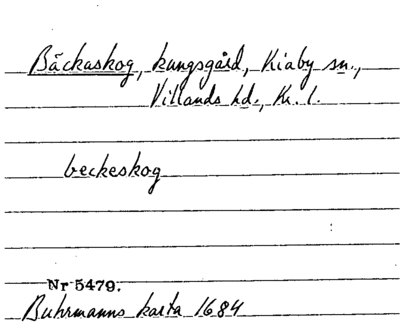 Bäckaskog, kungsgård, Kiaby sn.,
Villands hd., Kr. l.
beckeskog
Nr 5479.
Buhrmanns karta 1684